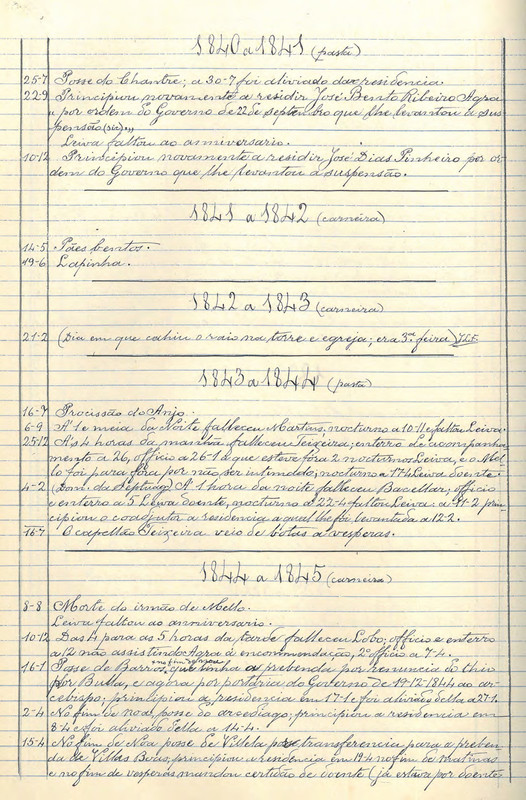 1840 a 1841 (pasta)
25-7 Posse do Chantre; a 30-7 foi aliviado da residencia
22-9 Principiou novamente a residir José Bento Ribeiro Agra
por ordem do Governo de 22 de septembro que lhe levantou a sus-
pensão (sic)
Leiva faltou ao anniversario.
10-12 Principiou novamente a residir José Dias Pinheiro por or-
dem do Governo que lhe levantou a suspensão.
1841 a 1842 (carneira)
14-5 Pães bentos.
19-6 Lapinha.
1842 a 1843 (carneira)
21-2 (Dia em que cahiu o raio na torre e egreja; era 3ª feira)
1843 a 1844 (pasta)
16-7 Procissão do Anjo.
6-9 A 1 e meia da Noite falleceu Martins, nocturno a 10-11 e faltou Leiva.
25-12 A's 4 horas da manhã falleceu Teixeira; enterro de acompanha-
mento a 26, officio a 26-1 a que esteve fóra 2 nocturnos Leiva, e o Mel-
lo foi para fóra por não ser intimado; nocturno a 17-4 Leiva doente.
4-2 (Dom. da Septuag.) A 1 hora da noite falleceu Bacellar, officio
e enterro a 5 Leiva doente, nocturno a 22-4 faltou Leiva; a 11-2 prin-
cipiou o coadjutor a residencia a qual lhe foi levantada a 12-2.
16-7 O capellão Teixeira veio de botas a vesperas.
1844 a 1845 (carneira)
8-8 Morte do irmão de Mello.
Leiva faltou ao anniversario.
10-12 Das 4 para as 5 horas da tarde falleceu Lobo; officio e enterro
a 12 não assistindo Agra á encommendação, 2º officio a 7-4.
16-1 Posse de Barros, que tinha a prebenda por renuncia do thio
por Bulla, e agora por portaria do Governo de 19-12-1844 ao ar-
cebispo: principiou a residencia em 17-1 e foi aliviado della a 27-1.
2-4 No fim de noa posse do arcediago; principiou a residencia em
3-4 e foi aliviado della a 14-4.
15-4 No fim de Noa posse de Villela por transferencia para a preben-
da de Villas Boas, principiou a residencia em 19-4 no fim de Matinas
e no fim de vesperas mandou certidão de doente (já estava por doente